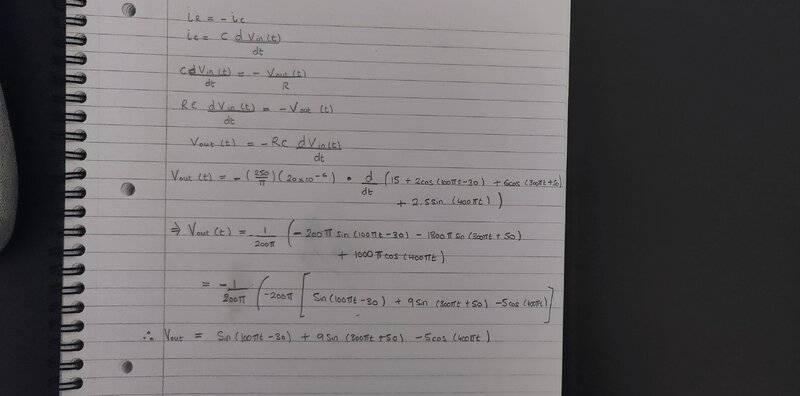 iR = - ic
ic = C dVin(t)/dt
C dVin(t)/dt = - Vout(t)/R
RC dVin(t)/dt = - Vout (t)
Vout (t) = -RC dVin(t)/dt
Vout (t) = - (250/π)(20×10^-6) • d/dt (15 + 2cos(100πt-30) + 6cos(300πt+50)
+ 2.5sin (400πt))
⇒ Vout (t) = -1/200π (- 200π sin(100πt-30) - 1800π sin(300πt + 50)
+ 1000π cos(400πt)
= -1/200π (-200π [ Sin(100πt-30) + 9sin (300πt+50) -5cos(400πt)]
∴ Vout = Sin(100πt-30) + 9Sin (300πt +50) -5cos (400πt)